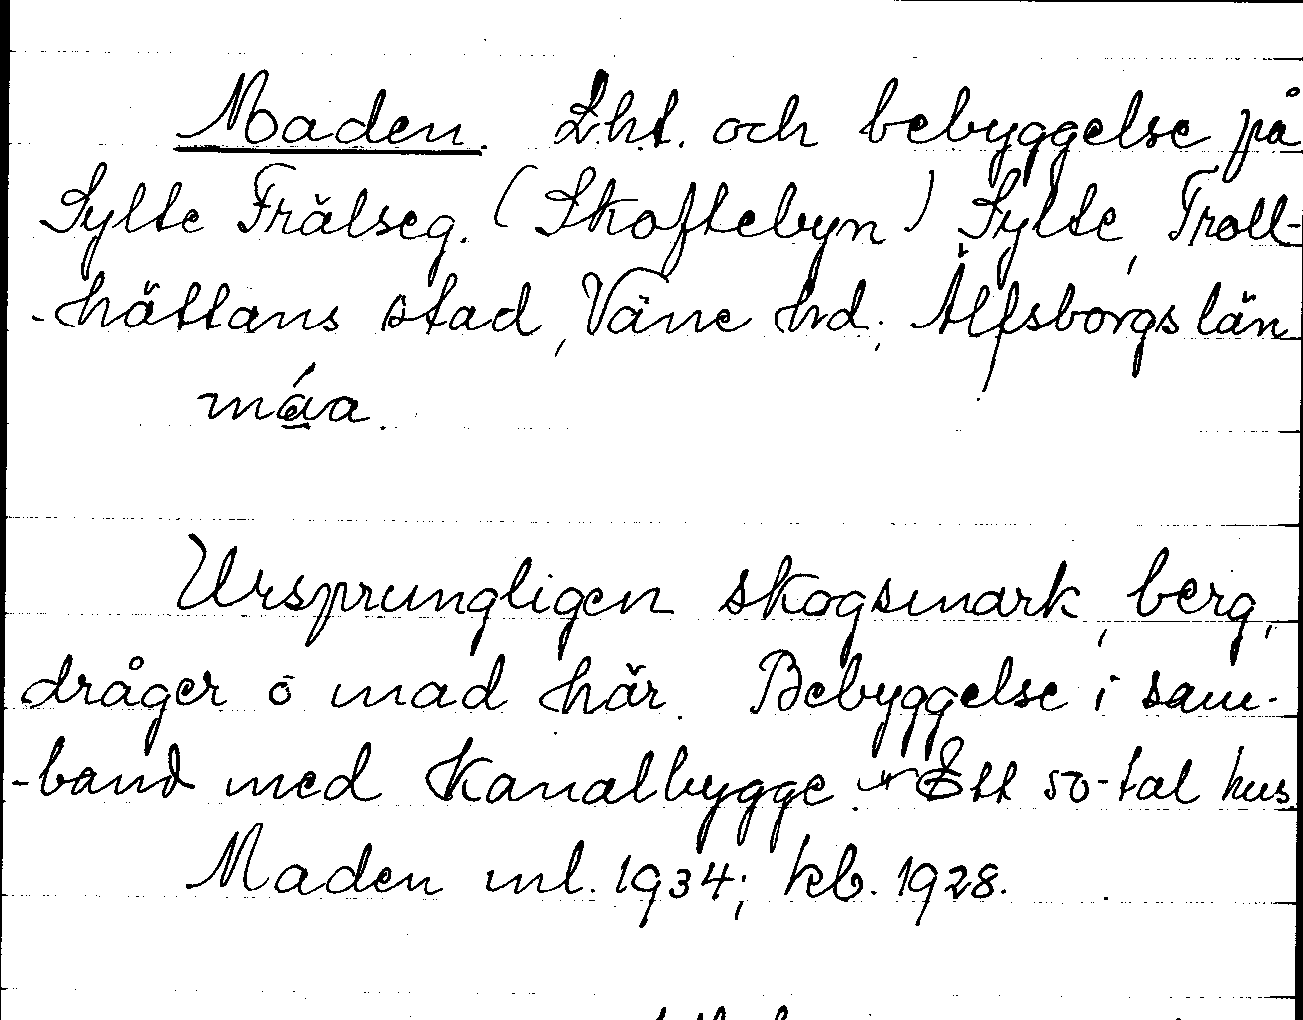 Maden. Lht. och bebyggelse på
Sylte Frälseg. (Skoftebyn) Sylte, Troll-
-hättans stad, Väne hd; Älfsborgs län
máa.
Ursprungligen skogsmark, berg,
dråger o mad här. Bebyggelse i sam-
-band med Kanalbygge. Ett 50-tal hus.
Maden ml. 1934; kb. 1928.